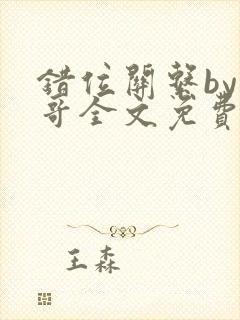 错位關繫by
哥全文免費
王森